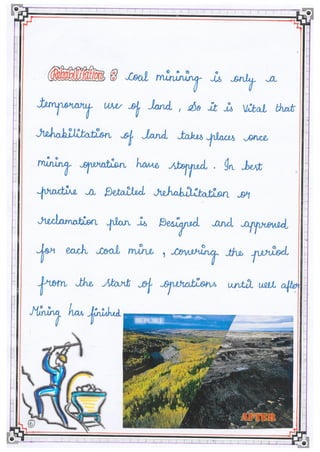 Rehabilitation : coal minining is only a
temporary use of land , so it is vital that
rehabilitation of land takes places once
mining operation have stopped . In best
practise a Detailed rehabilitation or
reclamation plan is Designed and approved
for each coal mine , covering the period
from the start of operations until well after
Mining has finished
BEFORE
AFTER